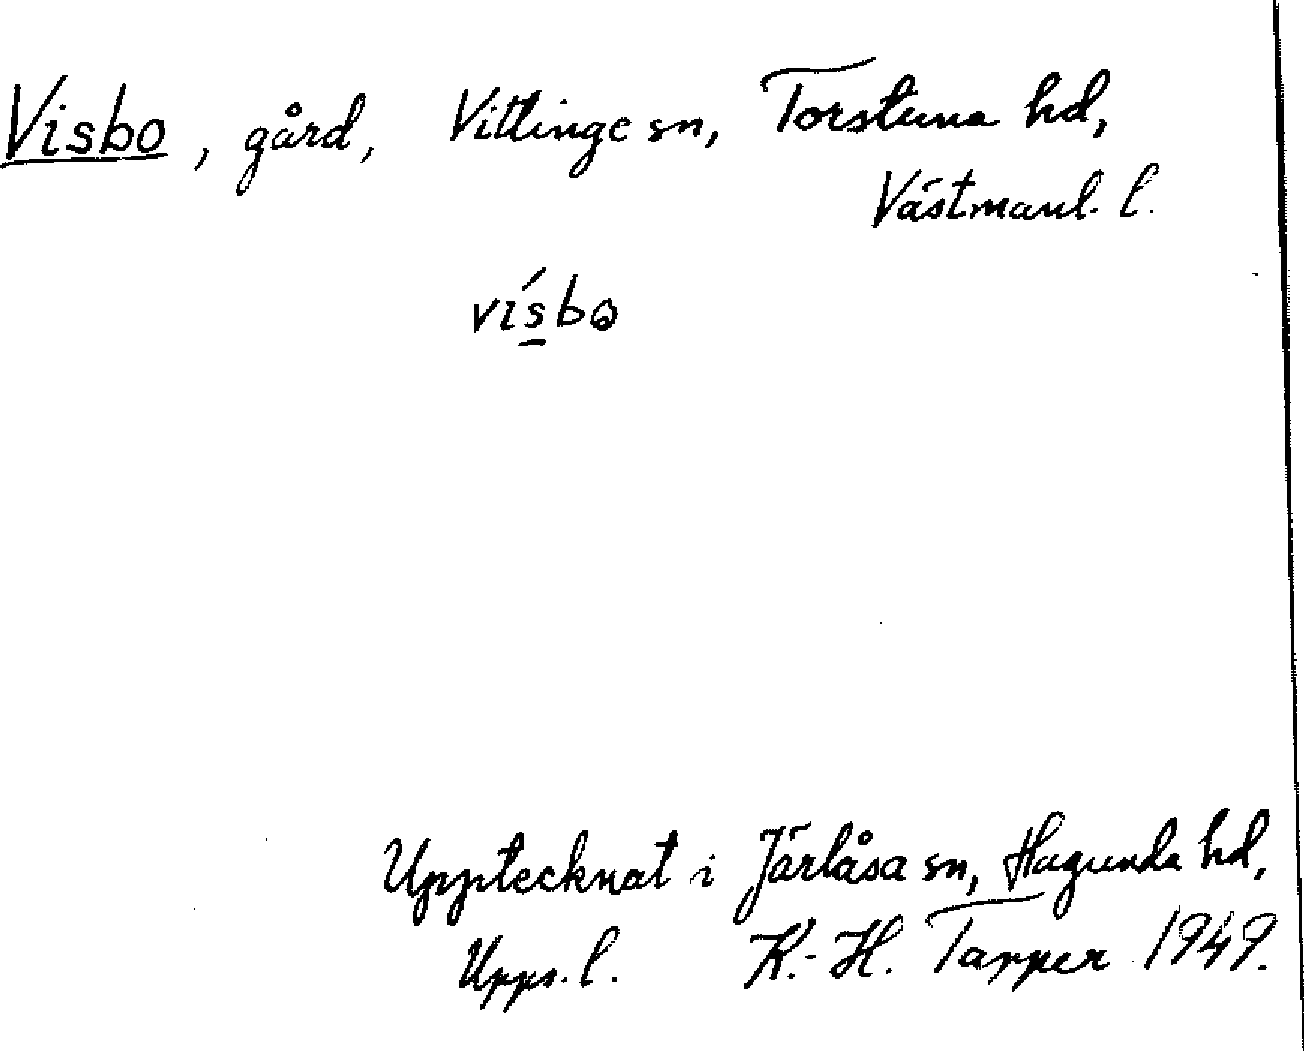 Visbo, gård, Vittinge sn, Torstuna hd,
Västmanl. l.
vísbo
Upptecknat i Järlåsa sn, Hagunda hd,
Upps. l. K.-H. Tapper 1949.